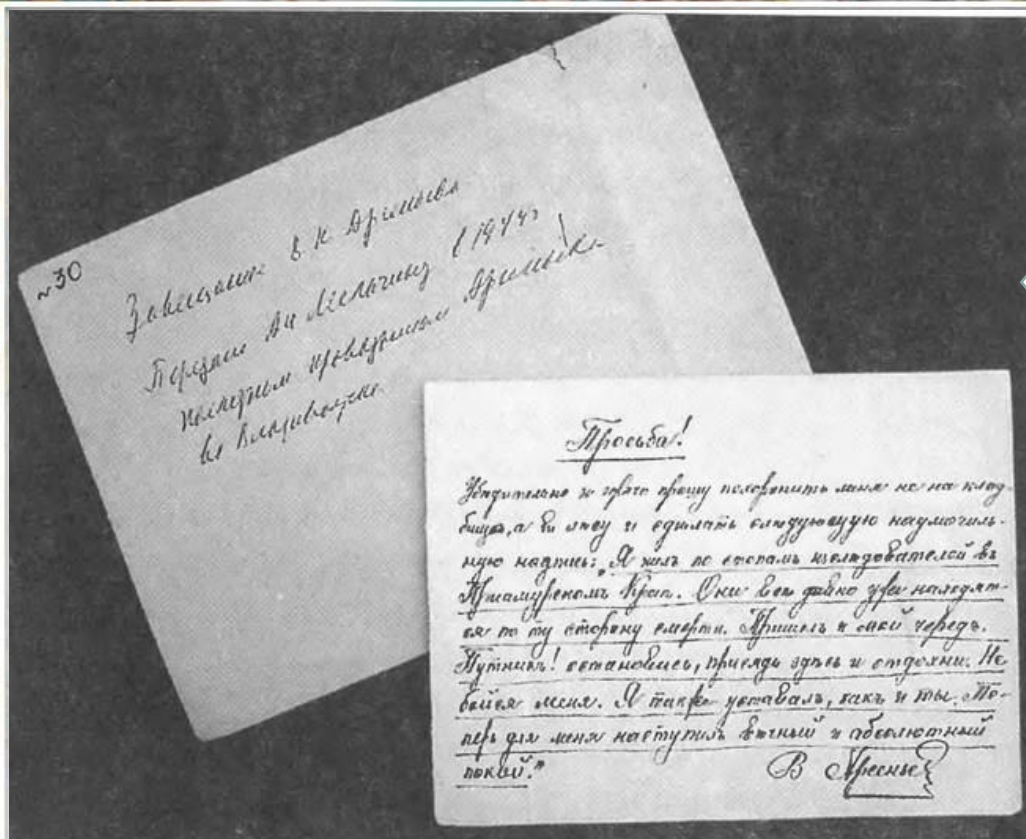 №30
Завещание В К Арсеньева
Передано в 194
Арсеньева
во Владивостоке
Просьба!
Убѣдительно и горячо прошу похоронить меня не на клад-
бищѣ, а въ лѣсу и сдѣлать слѣдующую надмогиль-
ную надпись: „Я шелъ по стопамъ изслѣдователей въ
Пріамурскомъ Краѣ. Они всѣ давно уже находят-
ся по ту сторону смерти. Пришелъ и мой чередъ.
Путникъ! остановись, присядь здѣсь и отдохни. Не
бойся меня. Я также уставалъ, какъ и ты. Те-
перь для меня наступилъ вѣчный и абсолютный
покой."
В Арсеньев